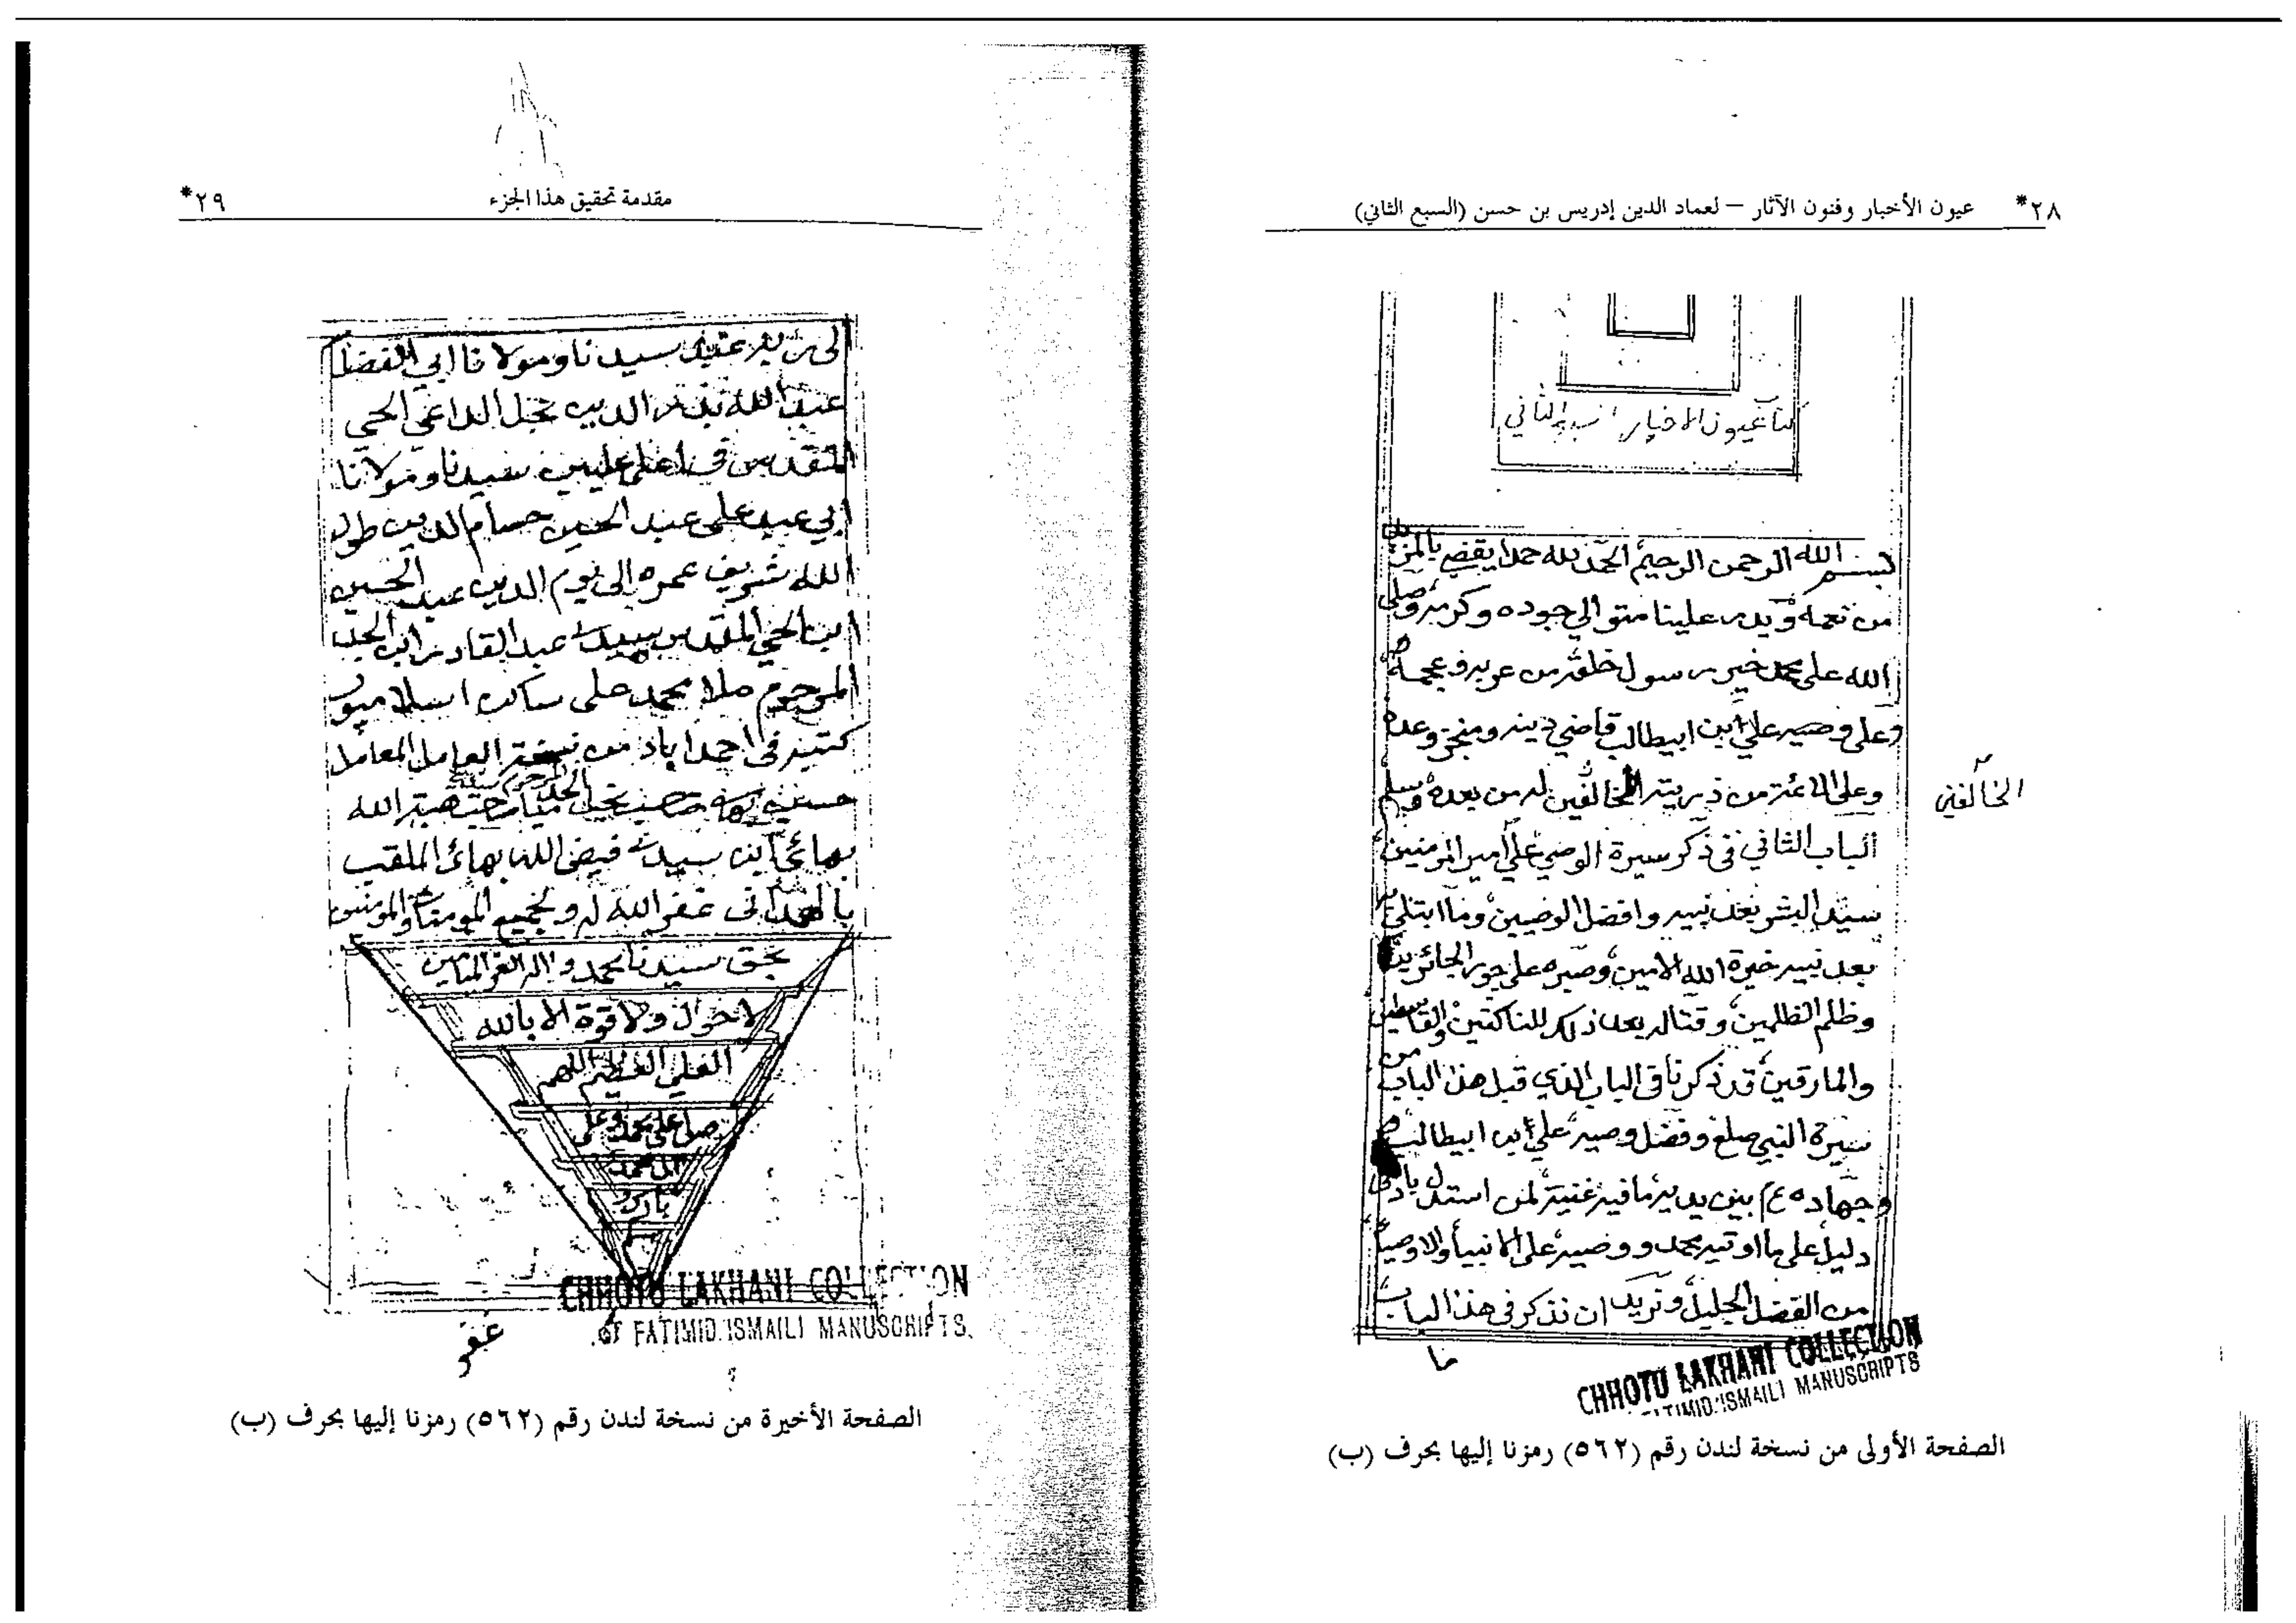 ٢٨* عيون الأخبار وفنون الآثار – لعماد الدين إدريس بن حسن (السبع الثاني)
كتاب عيون الاخبار السبع الثاني
بسم الله الرحمن الرحيم الحمد لله حمدا يقضي بالمزيد
من نعمه ويدر علينا متوالي جوده وكرمه وصلى
الله على محمد خير رسول خلقه من عربه وعجمه
وعلى وصيه علي ابن ابيطالب قاضي دينه ومنجز وعده
وعلى الائمة من ذريته الخالفين له من بعده وسلم
الخالفين
الباب الثاني في ذكر سيرة الوصي علي امير المومنين
سيد البشر بعد نبيه وافضل الوصيين وما ابتلي به
بعد نبيه خيرة الله الامين وصبره على جور الجائرين
وظلم الظلمين وقتاله بعد ذلك للناكثين والقاسطين
والمارقين قد ذكرنا في الباب الذي قبل هذا الباب من
سيرة النبي صلع وفضل وصيه علي ابن ابيطالب
وجهاده ع م بين يديه ما فيه غنية لمن استدل بادنى
دليل على ما اوتيه محمد ووصيه على الانبيا والاوصيا
من الفضل الجليل ونريد ان نذكر في هذا الباب
ما
CHHOTU LAKHANI COLLECTION
FATIMID ISMAILI MANUSCRIPTS
الصفحة الأولى من نسخة لندن رقم (٥٦٢) رمزنا إليها بحرف (ب)
مقدمة تحقيق هذا الجزء ٢٩*
سيدنا ومولانا ابي الفضل
عبد الله بدر الدين نجل الداعي الحي
المقدس في اعلى عليين سيدنا ومولانا
ابي عبد علي عبد الحسين حسام الدين طول
الله شريف عمره الى يوم الدين عبد الحسين
ابن الحي المقدس سيدي عبد القادر ابن الحد
المرحوم ملا محمد علي ساكن اسلامپور
كتبته في احمداباد من نسخة العامل المعامل
نجل ميامصاحب هبة الله
بهائي ابن سيدي فيض الله بهائي الملقب
غفر الله له ولجميع المومنات والمومنين
بحق سيدنا محمد واله الغر الميامين
لا حول ولا قوة الا بالله
العلي العظيم اللهم
صل على محمد وعلى
ال محمد
بارك و
CHHOTU LAKHANI COLLECTION
OF FATIMID ISMAILI MANUSCRIPTS.
الصفحة الأخيرة من نسخة لندن رقم (٥٦٢) رمزنا إليها بحرف (ب)